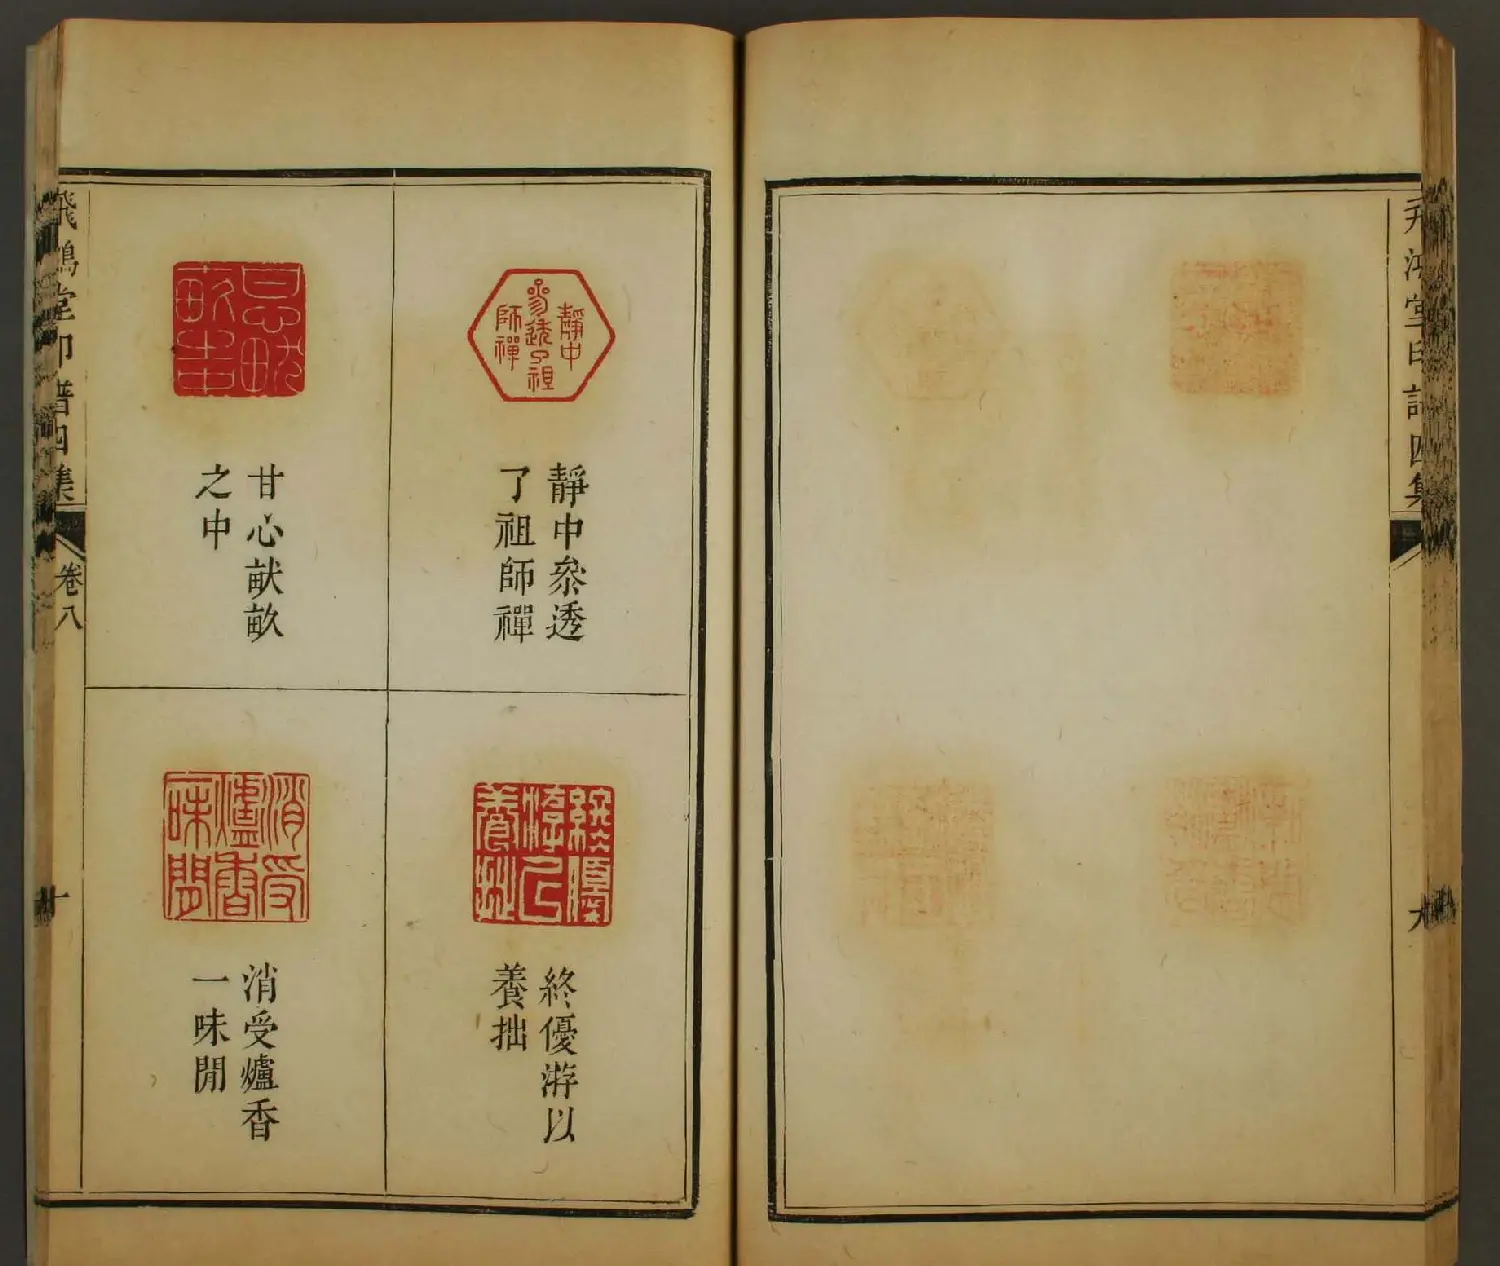 靜中
參透了祖
師禪
靜中叅透
了祖師禪
甘心畎
畝之中
甘心畎畝
之中
終優
游以
養拙
終優游以
養拙
消受
爐香
一味閒
消受爐香
一味閒
飛鴻堂印譜四集
卷八
十